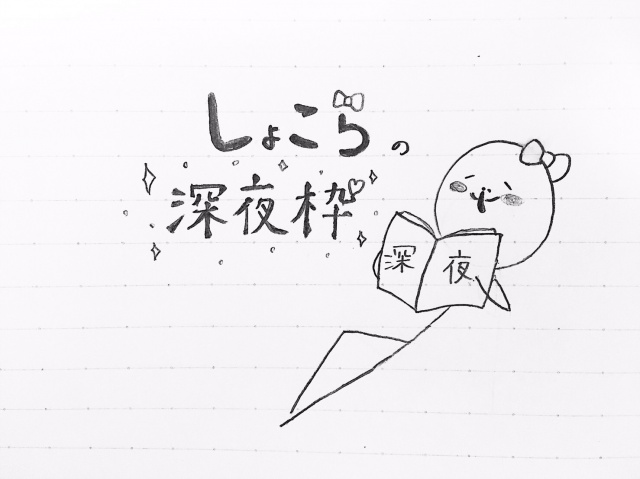 しょこらの
深夜枠
深夜